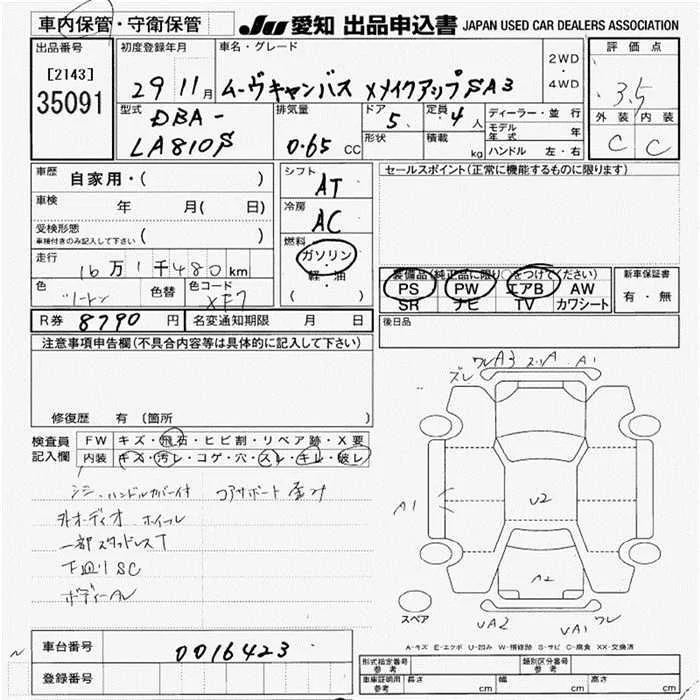 車内保管・守衛保管
JU 愛知 出品申込書 JAPAN USED CAR DEALERS ASSOCIATION
出品番号
[2143]
35091
初度登録年月
29 11月
車名・グレード
ムーヴキャンバス XメイクアップSA3
2WD
・
4WD
評価点
3.5
外装 内装
C C
型式
DBA-
LA810S
排気量
0.65 CC
ドア
5
定員
4人
形状
積載
kg
ディーラー・並行
モデル年式 年
ハンドル 左・右
車歴
自家用・( )
車検
年 月( 日)
受検形態
車検付きのみ記入して下さい ( )
走行
16万1千480km
色
ツートン
色替
色コード
XF7
シフト
AT
冷房
AC
燃料
ガソリン
・
軽・油
( )
セールスポイント(正常に機能するものに限ります)
装備品(純正品に限り○をつけてください)
PS PW エアB AW
SR ナビ TV カワシート
新車保証書
有・無
後日品
R券 8790 円
名変通知期限 月 日
注意事項申告欄(不具合内容等は具体的に記入して下さい)
修復歴 有 (箇所 )
検査員
記入欄
FW キズ・飛石・ヒビ割・リペア跡・X要
内装 キズ・汚レ・コゲ・穴・スレ・キレ・破レ
シミ ハンドルカバー付
外オーディオ ホイール
一部スタッドレスT
下廻りSC
ズレ
A1
A1
U2
A2
UA2
UA1
ワレ
スペア
A-キズ E-エクボ U-凹み W-補修跡 S-サビ C-腐食 XX-交換済
車台番号
0016423
登録番号
形式指定番号
参考
類別区分番号
参考
車庫証明用
参考
長さ cm
幅 cm
高さ cm